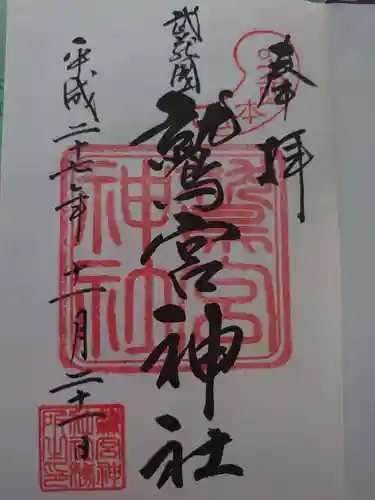 奉拝
武蔵国
鷲宮神社
平成二十七年十一月二十一日
鷲宮神社